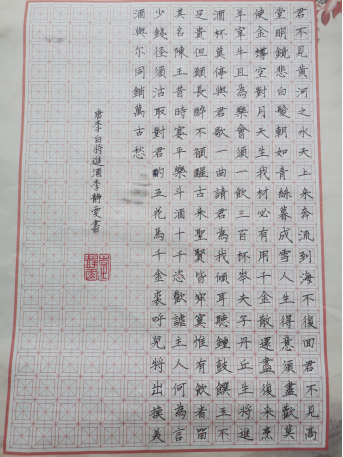 君不見黃河之水天上來奔流到海不復回君不見高
堂明鏡悲白髮朝如青絲暮成雪人生得意須盡歡莫
使金樽空對月天生我材必有用千金散還盡復來烹
羊宰牛且為樂會須一飲三百杯岑夫子丹丘生將進
酒杯莫停與君歌一曲請君為我傾耳聽鍾鼓饌玉不
足貴但願長醉不願醒古來聖賢皆寂寞惟有飲者留
其名陳王昔時宴平樂斗酒十千恣歡謔主人何為言
少錢径須沽取對君酌五花馬千金裘呼兒將出換美
酒與尔同銷萬古愁
唐李白將進酒李靜雯書